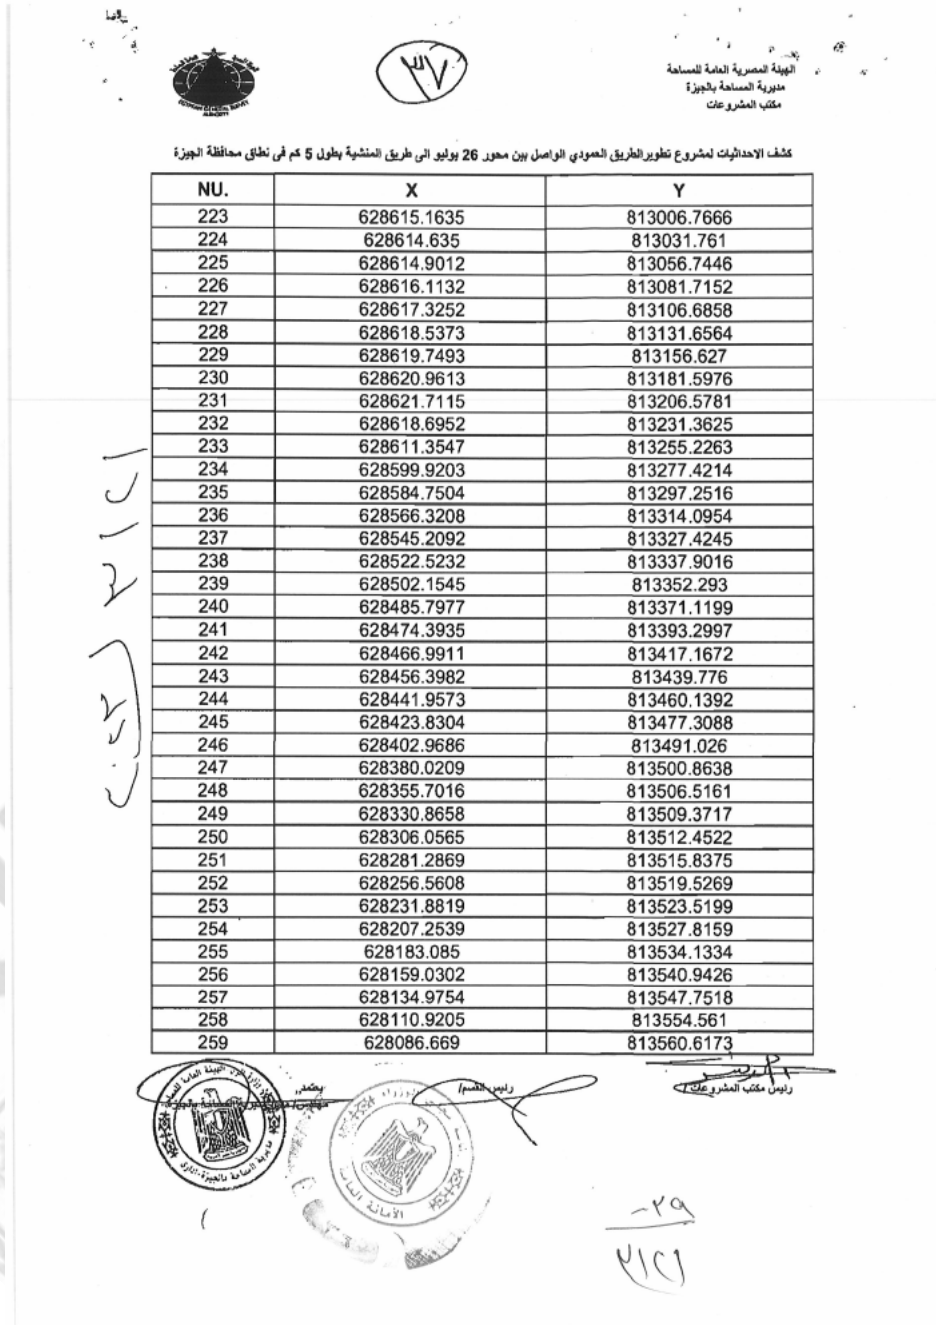 ٣٧
الهيئة المصرية العامة للمساحة
مديرية المساحة بالجيزة
مكتب المشروعات
EGYPTIAN GENERAL SURVEY
AUTHORITY
كشف الاحداثيات لمشروع تطوير الطريق العمودي الواصل بين محور 26 يوليو الى طريق المنشية بطول 5 كم فى نطاق محافظة الجيزة
NU. X Y
223 628615.1635 813006.7666
224 628614.635 813031.761
225 628614.9012 813056.7446
226 628616.1132 813081.7152
227 628617.3252 813106.6858
228 628618.5373 813131.6564
229 628619.7493 813156.627
230 628620.9613 813181.5976
231 628621.7115 813206.5781
232 628618.6952 813231.3625
233 628611.3547 813255.2263
234 628599.9203 813277.4214
235 628584.7504 813297.2516
236 628566.3208 813314.0954
237 628545.2092 813327.4245
238 628522.5232 813337.9016
239 628502.1545 813352.293
240 628485.7977 813371.1199
241 628474.3935 813393.2997
242 628466.9911 813417.1672
243 628456.3982 813439.776
244 628441.9573 813460.1392
245 628423.8304 813477.3088
246 628402.9686 813491.026
247 628380.0209 813500.8638
248 628355.7016 813506.5161
249 628330.8658 813509.3717
250 628306.0565 813512.4522
251 628281.2869 813515.8375
252 628256.5608 813519.5269
253 628231.8819 813523.5199
254 628207.2539 813527.8159
255 628183.085 813534.1334
256 628159.0302 813540.9426
257 628134.9754 813547.7518
258 628110.9205 813554.561
259 628086.669 813560.6173
رئيس مكتب المشروعات /
رئيس القسم/
يعتمد,,
المساحة بالجيزة
الأمانة العامة